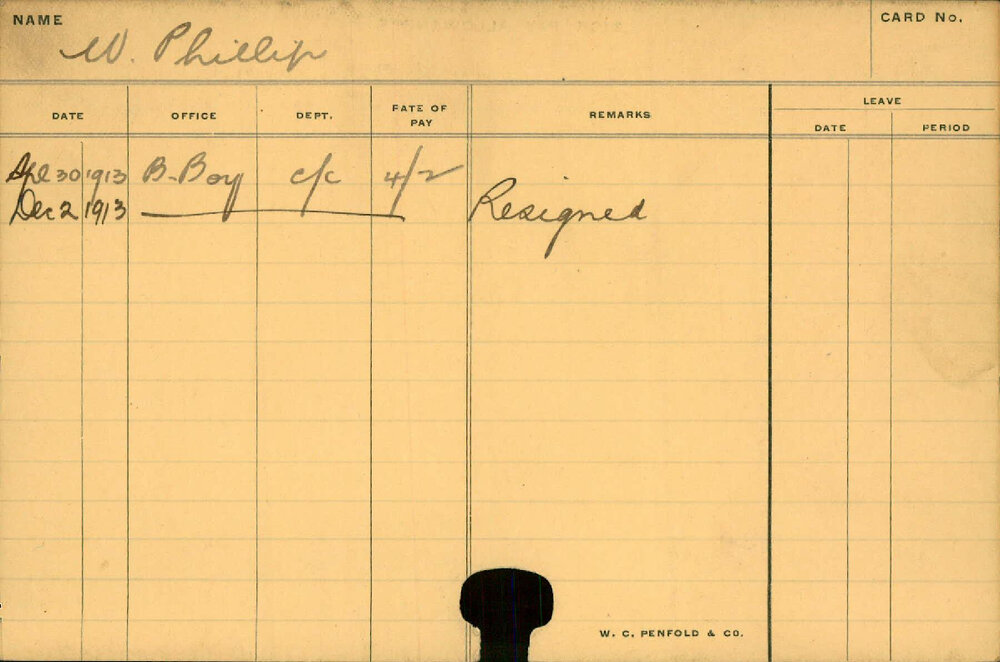 NAME
W. Phillip
CARD No.
DATE OFFICE DEPT. RATE OF PAY REMARKS LEAVE
DATE PERIOD
Apl 30 1913 B-Boy c/c 4/2
Dec 2 1913 Resigned
W. C. PENFOLD & CO.